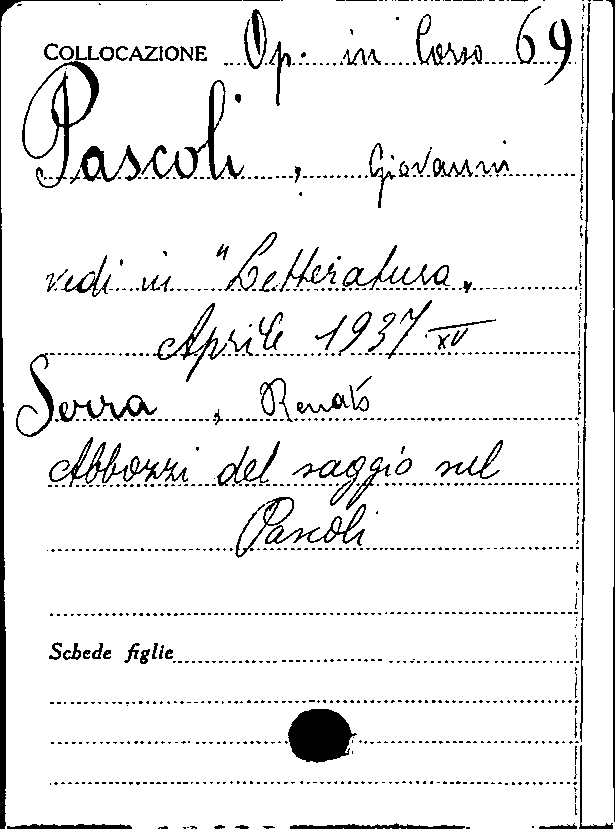 COLLOCAZIONE Op. in Corso 69
Pascoli, Giovanni
vedi in "Letteratura"
Aprile 1937 XV
Serra, Renato
Abbozzi del saggio sul
Pascoli
Schede figlie